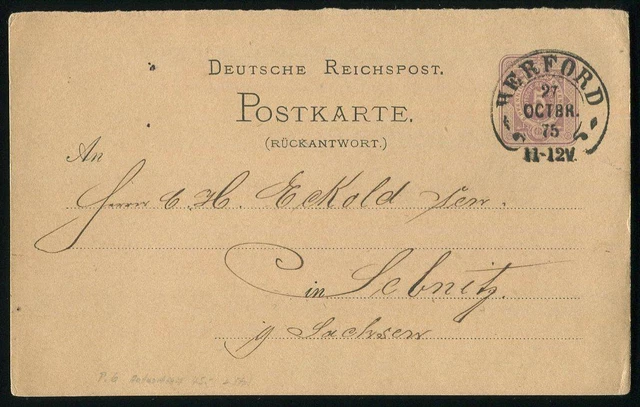 DEUTSCHE REICHSPOST.
POSTKARTE.
(RÜCKANTWORT.)
HERFORD
27
OCTBR.
75
11-12V.
An
Herrn C. H. Eckold sen.
in Sebnitz.
Sachsen